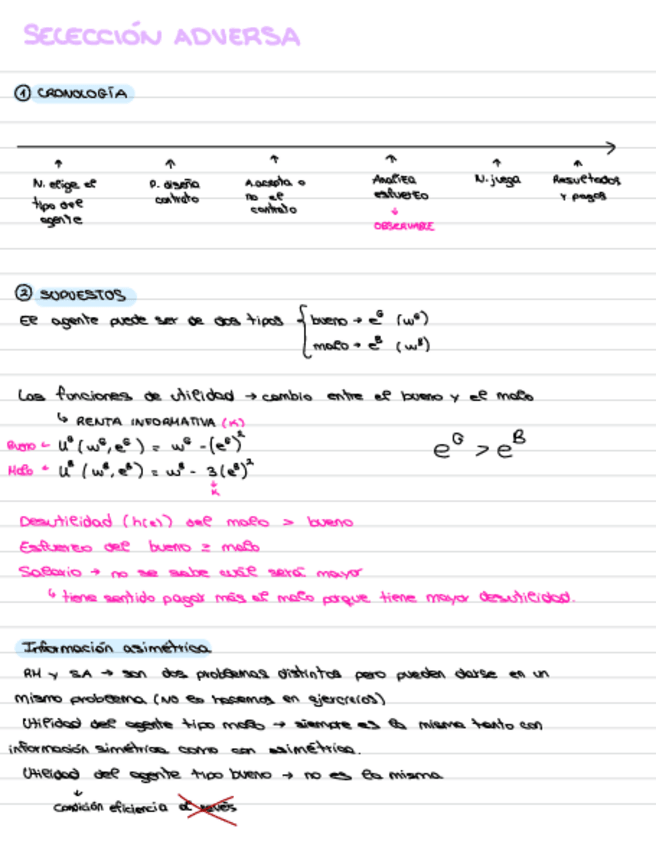 SELECCIÓN ADVERSA
① CRONOLOGÍA
N. elige el tipo de agente
P. diseña contrato
A. acepta o no el contrato
Analiza esfuerzo
↓
OBSERVABLE
N. juega
Resultados y pagos
② SUPUESTOS
El agente puede ser de dos tipos { bueno → e^G (w^G)
malo → e^B (w^B)
Las funciones de utilidad → cambio entre el bueno y el malo
↳ RENTA INFORMATIVA (K)
Bueno ← U^G (w^G, e^G) = w^G - (e^G)^2
Malo ← U^B (w^B, e^B) = w^B - 3(e^B)^2
↓
K
e^G > e^B
Desutilidad (h(e)) del malo > bueno
Esfuerzo del bueno ≥ malo
Salario → no se sabe cuál será mayor
↳ tiene sentido pagar más al malo porque tiene mayor desutilidad.
Información asimétrica
RM y SA → son dos problemas distintos pero pueden darse en un
mismo problema (NO lo hacemos en ejercicios)
Utilidad del agente tipo malo → siempre es la misma tanto con
información simétrica como con asimétrica.
Utilidad del agente tipo bueno → no es la misma
↓
Condición eficiencia al revés